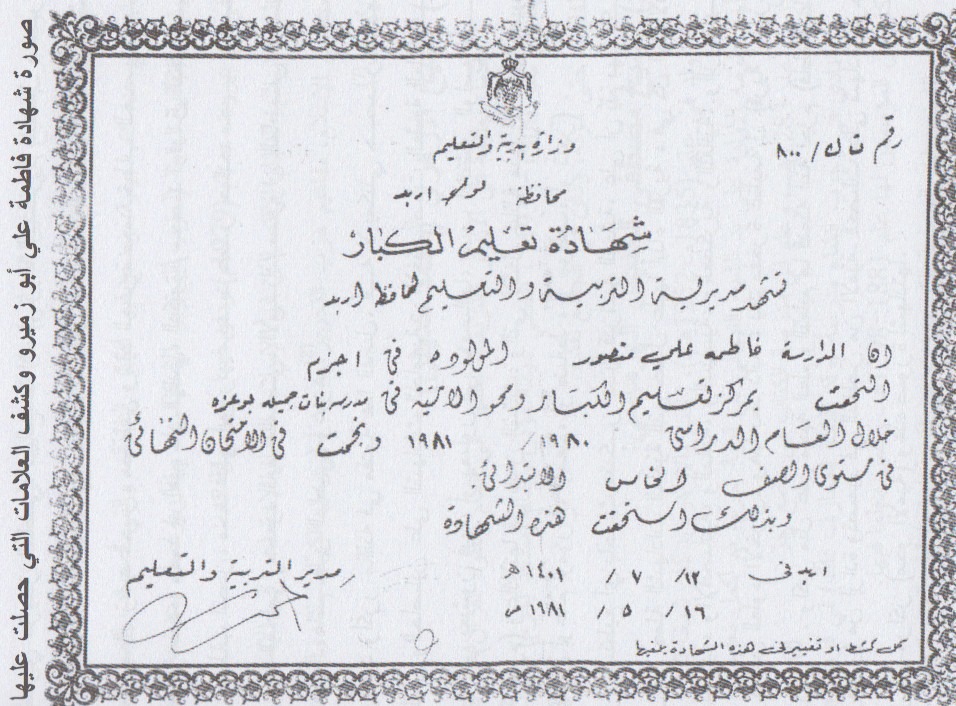 صورة شهادة فاطمة علي أبو زميرو وكشف العلامات التي حصلت عليها
رقم ت ك / ٨٠٠
وزارة التربية والتعليم
محافظة اربد
شهادة تعليم الكبار
تشهد مديرية التربية والتعليم لمحافظة اربد
ان الدارسة فاطمه علي منصور المولوده في اجزم
التحقت بمركز تعليم الكبار ومحو الامية في مدرسه بنات جميله بوعزه
خلال العام الدراسي ١٩٨٠ / ١٩٨١ ونجحت في الامتحان النهائي
في مستوى الصف الخامس الابتدائي.
وبذلك استحقت هذه الشهادة
اربد في ١٢ / ٧ / ١٤٠١ هـ
١٦ / ٥ / ١٩٨١ م
مدير التربية والتعليم
كل كشط او تغيير في هذه الشهادة يلغيها